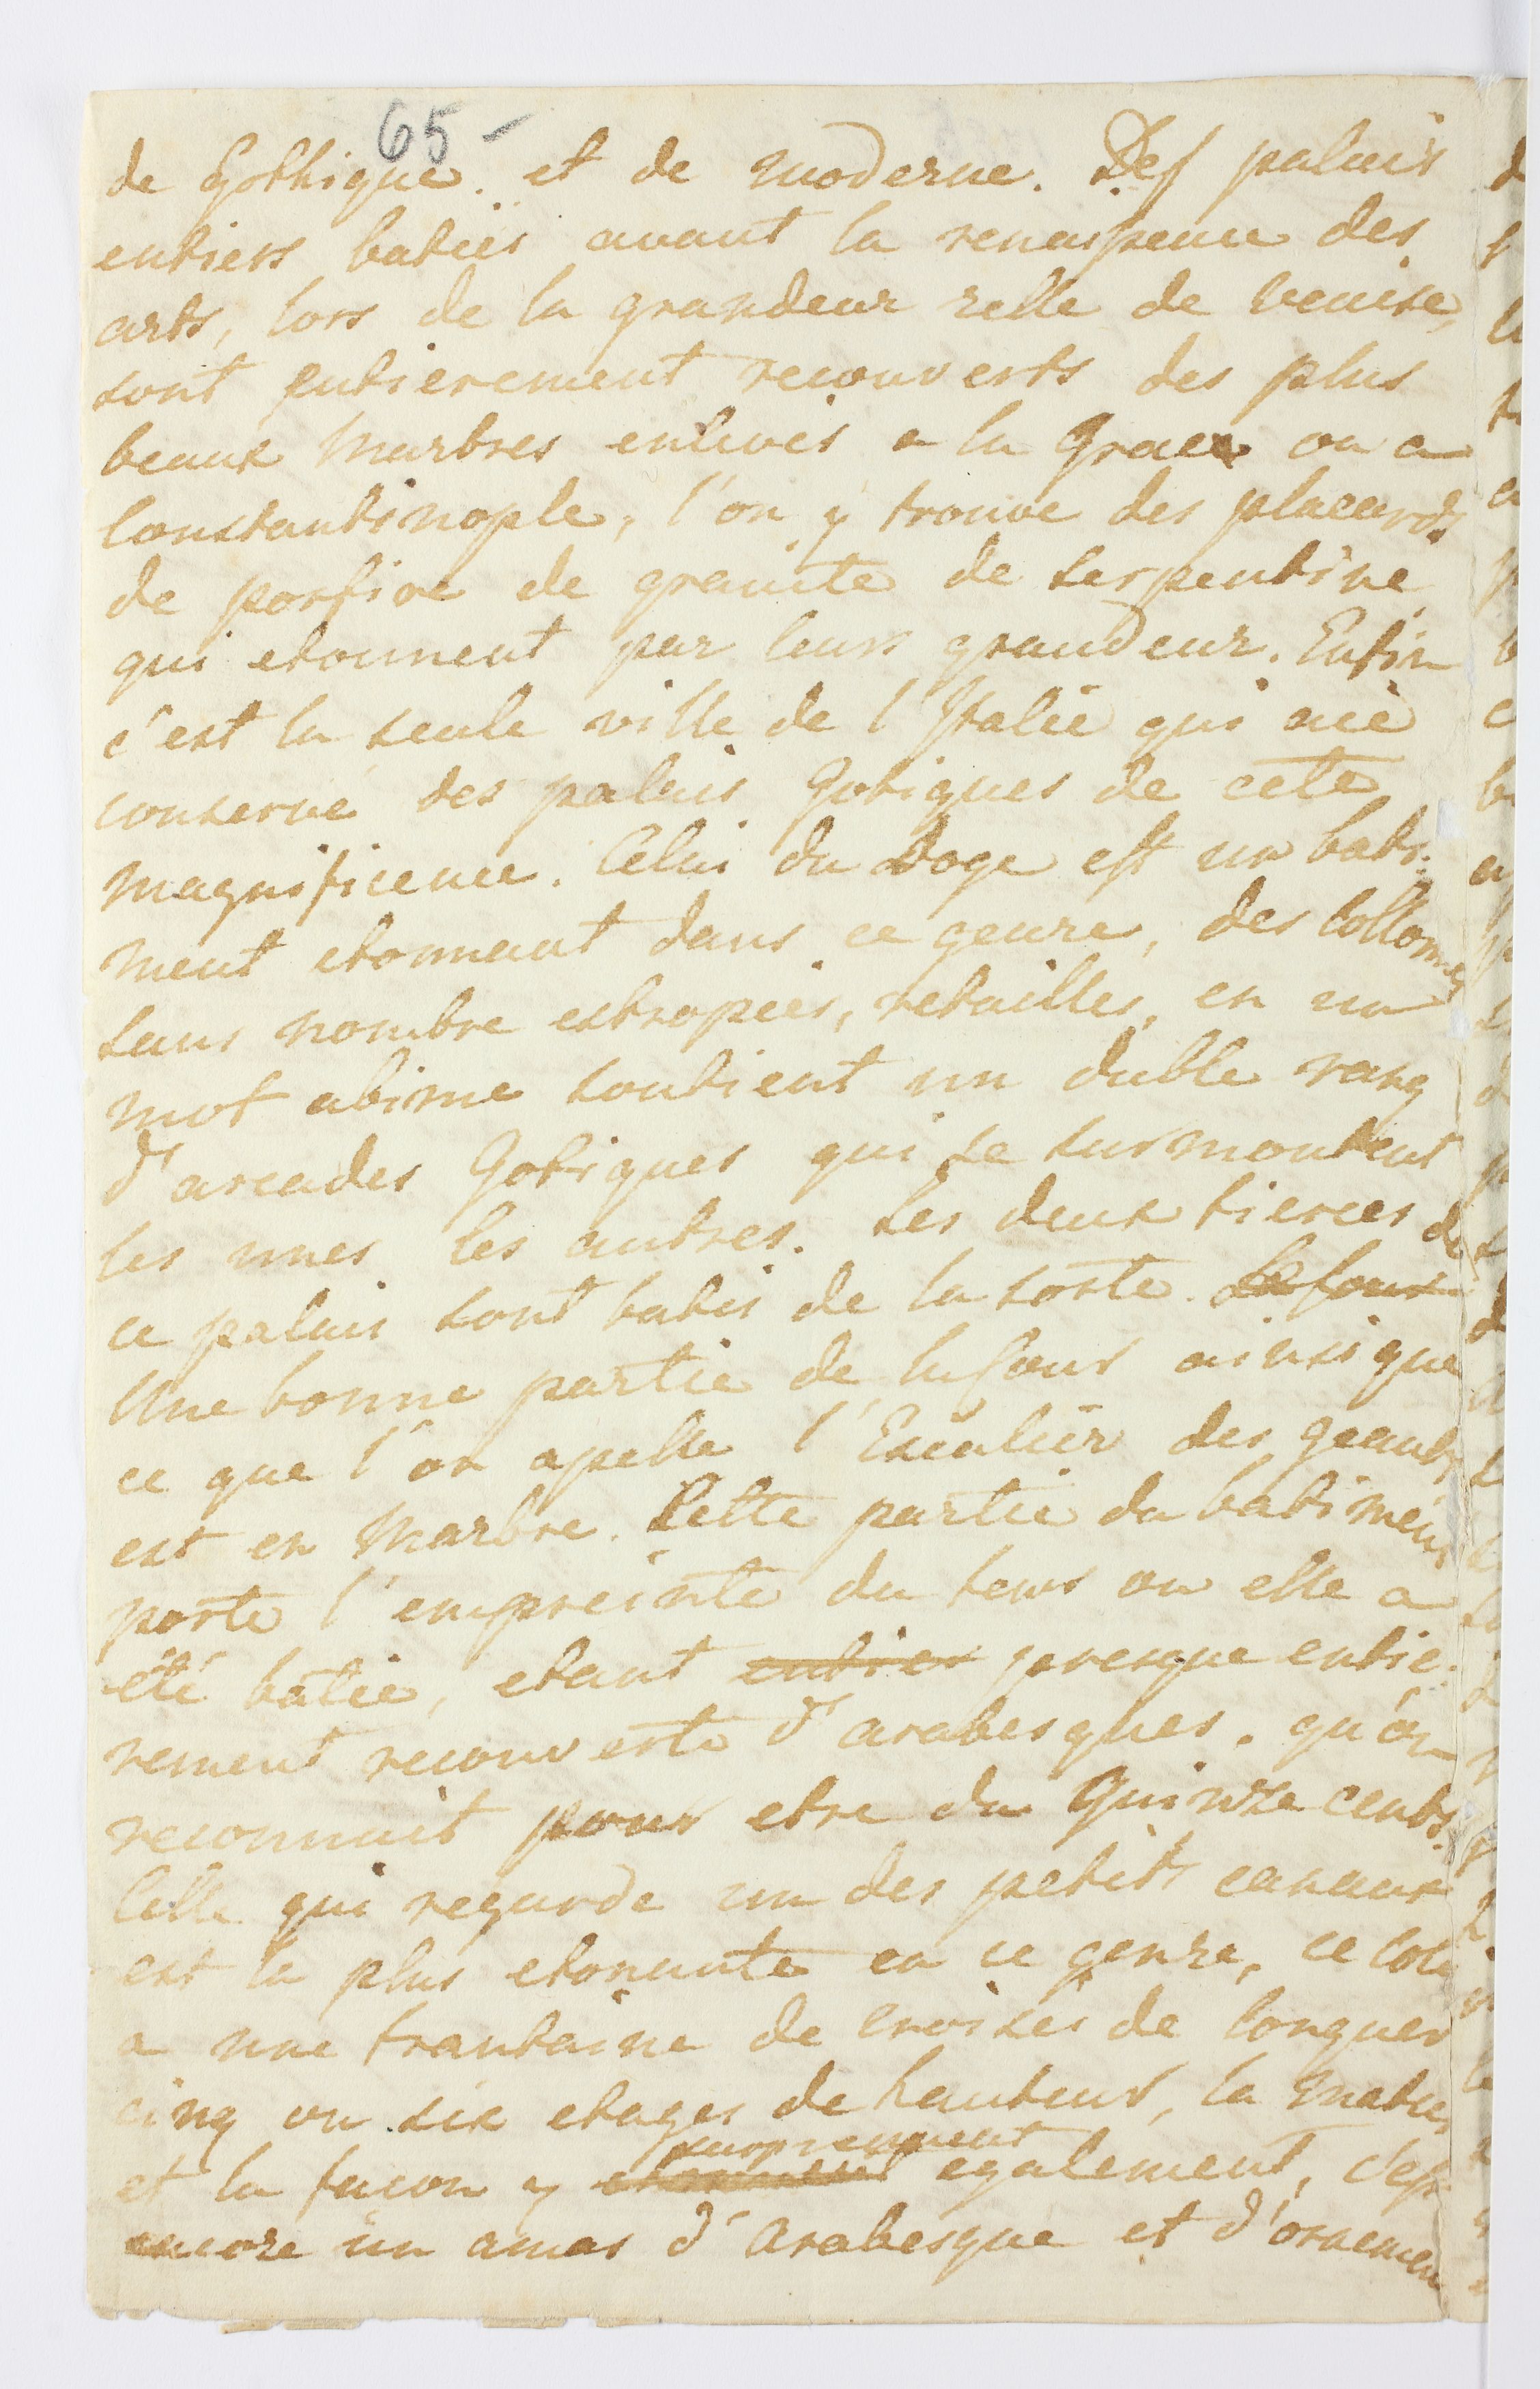 65 -
de Gothique. et de moderne. Des palais
entiers baties avant la renaissence des
arts, lors de la grandeur relle de Venise,
sont entierement recouverts des plus
beaux Marbres enlevés a la Grece ou a
Constantinople, l'on y trouve des placards
de porfire de granite de serpentine
qui etonnent par leurs grandeur. Enfin
c'est la seule ville de l'Italie qui aie
conservé des palais Gotiques de cete
magnificence. Celui du Doge est un bati-
ment etonnant dans ce genre, des Collones
sans nombre estropiees, retailles, en un
mot abime soutient un duble rang
d'arcades Gotiques qui se surmontent
les unes les autres. Les deux tierces de
ce palais sont batis de la sorte. La cour
Une bonne partie de la cour ainsi que
ce que l'on apelle l'Escalier des geants
est en Marbre. Cette partie du batiment
porte l'empreinte du tems ou elle a
été batie, etant entier presque entie-
rement recouverte d'arabesques. qu'on
reconnait pour etre du Quinze cents.
Celle qui regarde un des petits canaux
est la plus etonante en ce genre, ce coté
a une trantaine de croisés de longuer
cinq ou six etages de hauteur, la matier
surprennent
et la facon y egalement, c'est
encore un amas d'Arabesque et d'ornemen